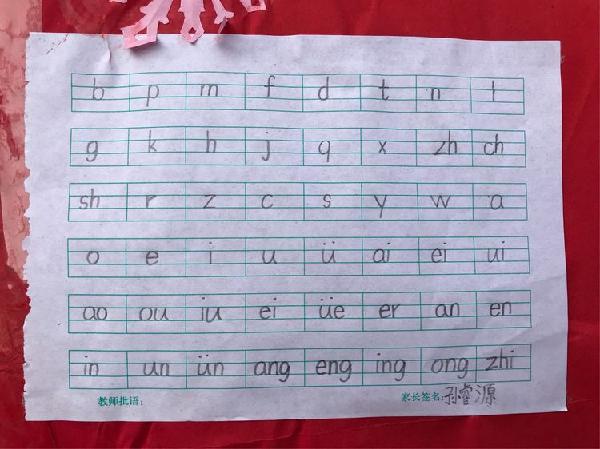 b p m f d t n l
g k h j q x zh ch
sh r z c s y w a
o e i u ü ai ei ui
ao ou iu ei üe er an en
in un ün ang eng ing ong zhi
教师批语: 家长签名:孙睿源